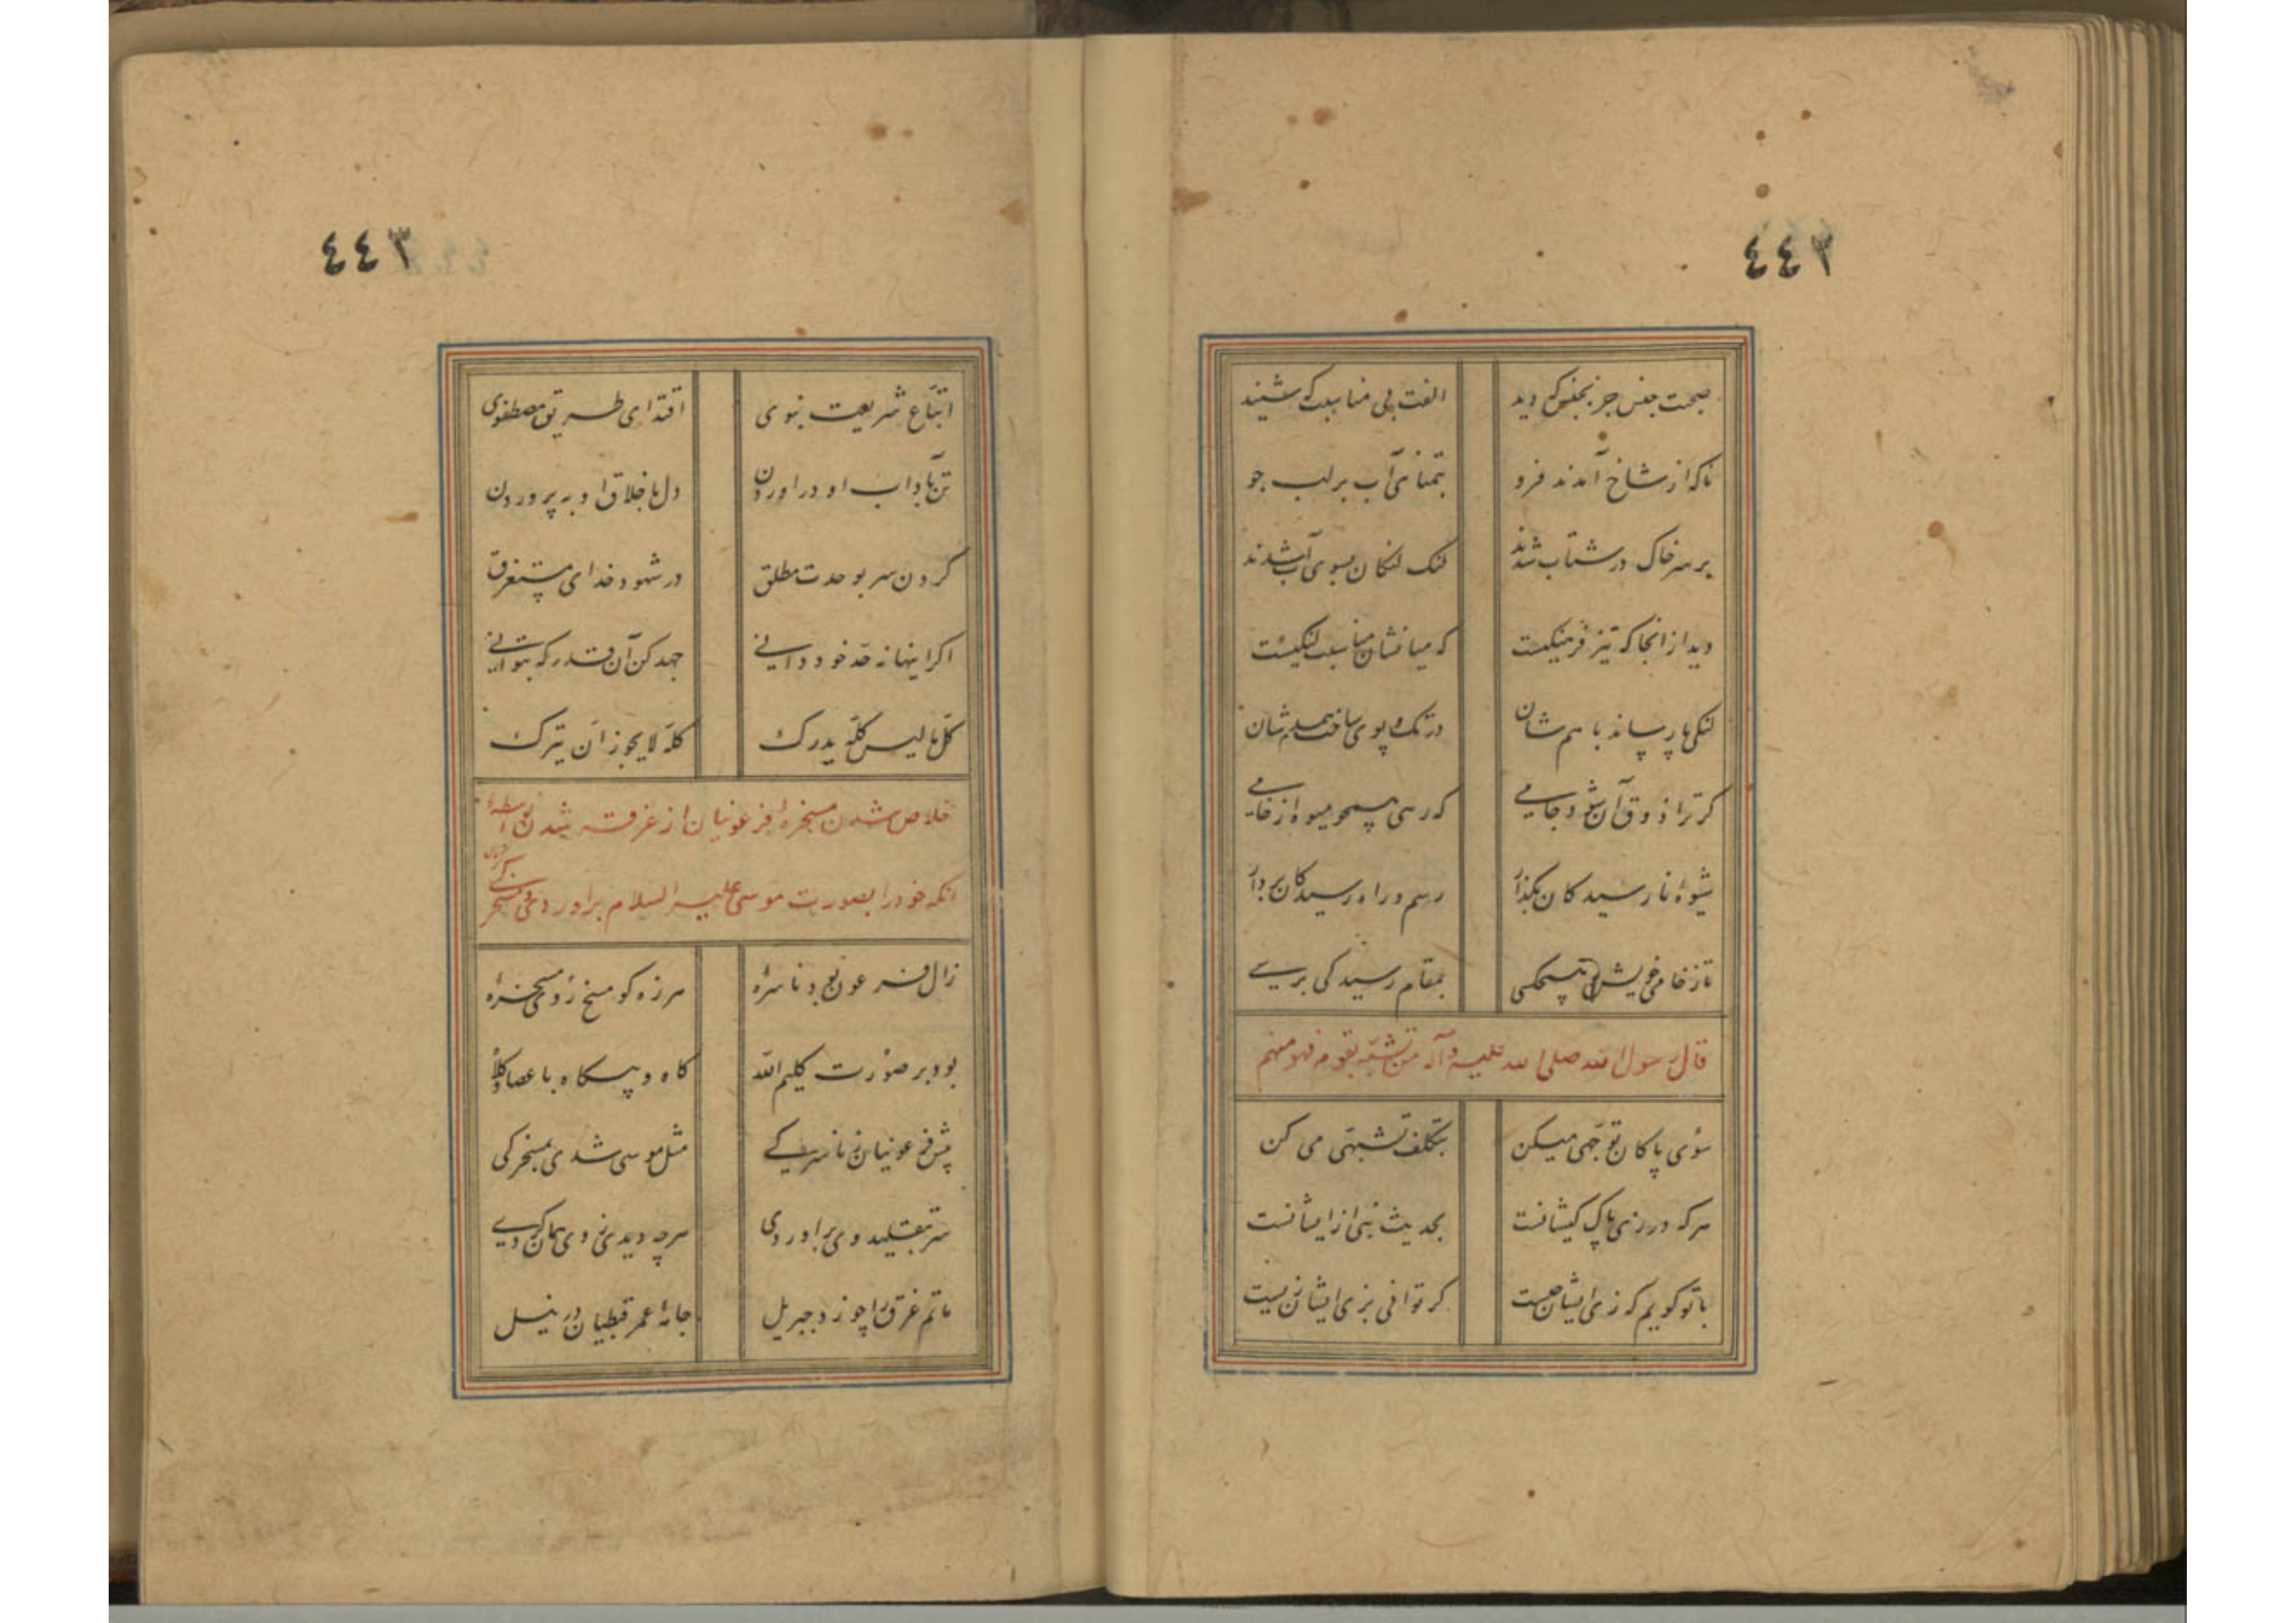 ٤٤٢
صحبت جنس جز بجنس که دید الفت بی مناسبت که شنید
ناکه از شاخ آمدند فرو بتمنای آب بر لب جو
بر سر خاک در شتاب شدند لنک لنکان بسوی آب شدند
دید از انجا که تیز فرهنکیست که میانشان مناسبت لنکیست
لنکی پا رساند با هم شان در تک و پوی ساخت همدم شان
کر ترا ذوق آن شود جامی که رسی همچو میوه از خامی
شیوهٔ نارسیدکان بکذار رسم و راه رسیدکان بردار
تا ز خامی خویش پی بمقام رسیدکی برسی
قال رسول الله صلی الله علیه و آله من تشبه بقوم فهو منهم
سوی پاکان توجهی میکن بتکلف تشبهی می کن
هرکه در زی پاک کیشانست بحدیث نبی از ایشانست
با تو کویم که زی ایشان چیست کر توانی بزی ایشان زیست
٤٤٣
اتباع شریعت نبوی اقتدای طریق مصطفوی
تن باداب او در اوردن دل باخلاق او بپروردن
کردن سر بوحدت مطلق در شهود خدای مستغرق
اکر اینها نه حد خود دانی جهد کن آن قدر که بتوانی
کل ما لیس کله یدرک کله لا یجوز ان یترک
خلاص شدن مسخرهٔ فرعونیان از غرقه شدن بواسطهٔ
انکه خود را بصورت موسی علیه السلام براوردی و مسخرکی کردی
زال فرعون بود ناسره هرزه کو مسخ روی مسخره
بود بر صورت کلیم الله کاه و بیکاه با عصا و کلاه
پیش فرعونیان ز ناسرکی مثل موسی شدی بمسخرکی
سر بتقلید وی براوردی هرچه دیدی ز وی همان کردی
ماتم غرق را چو زد جبریل جامهٔ عمر قبطیان در نیل